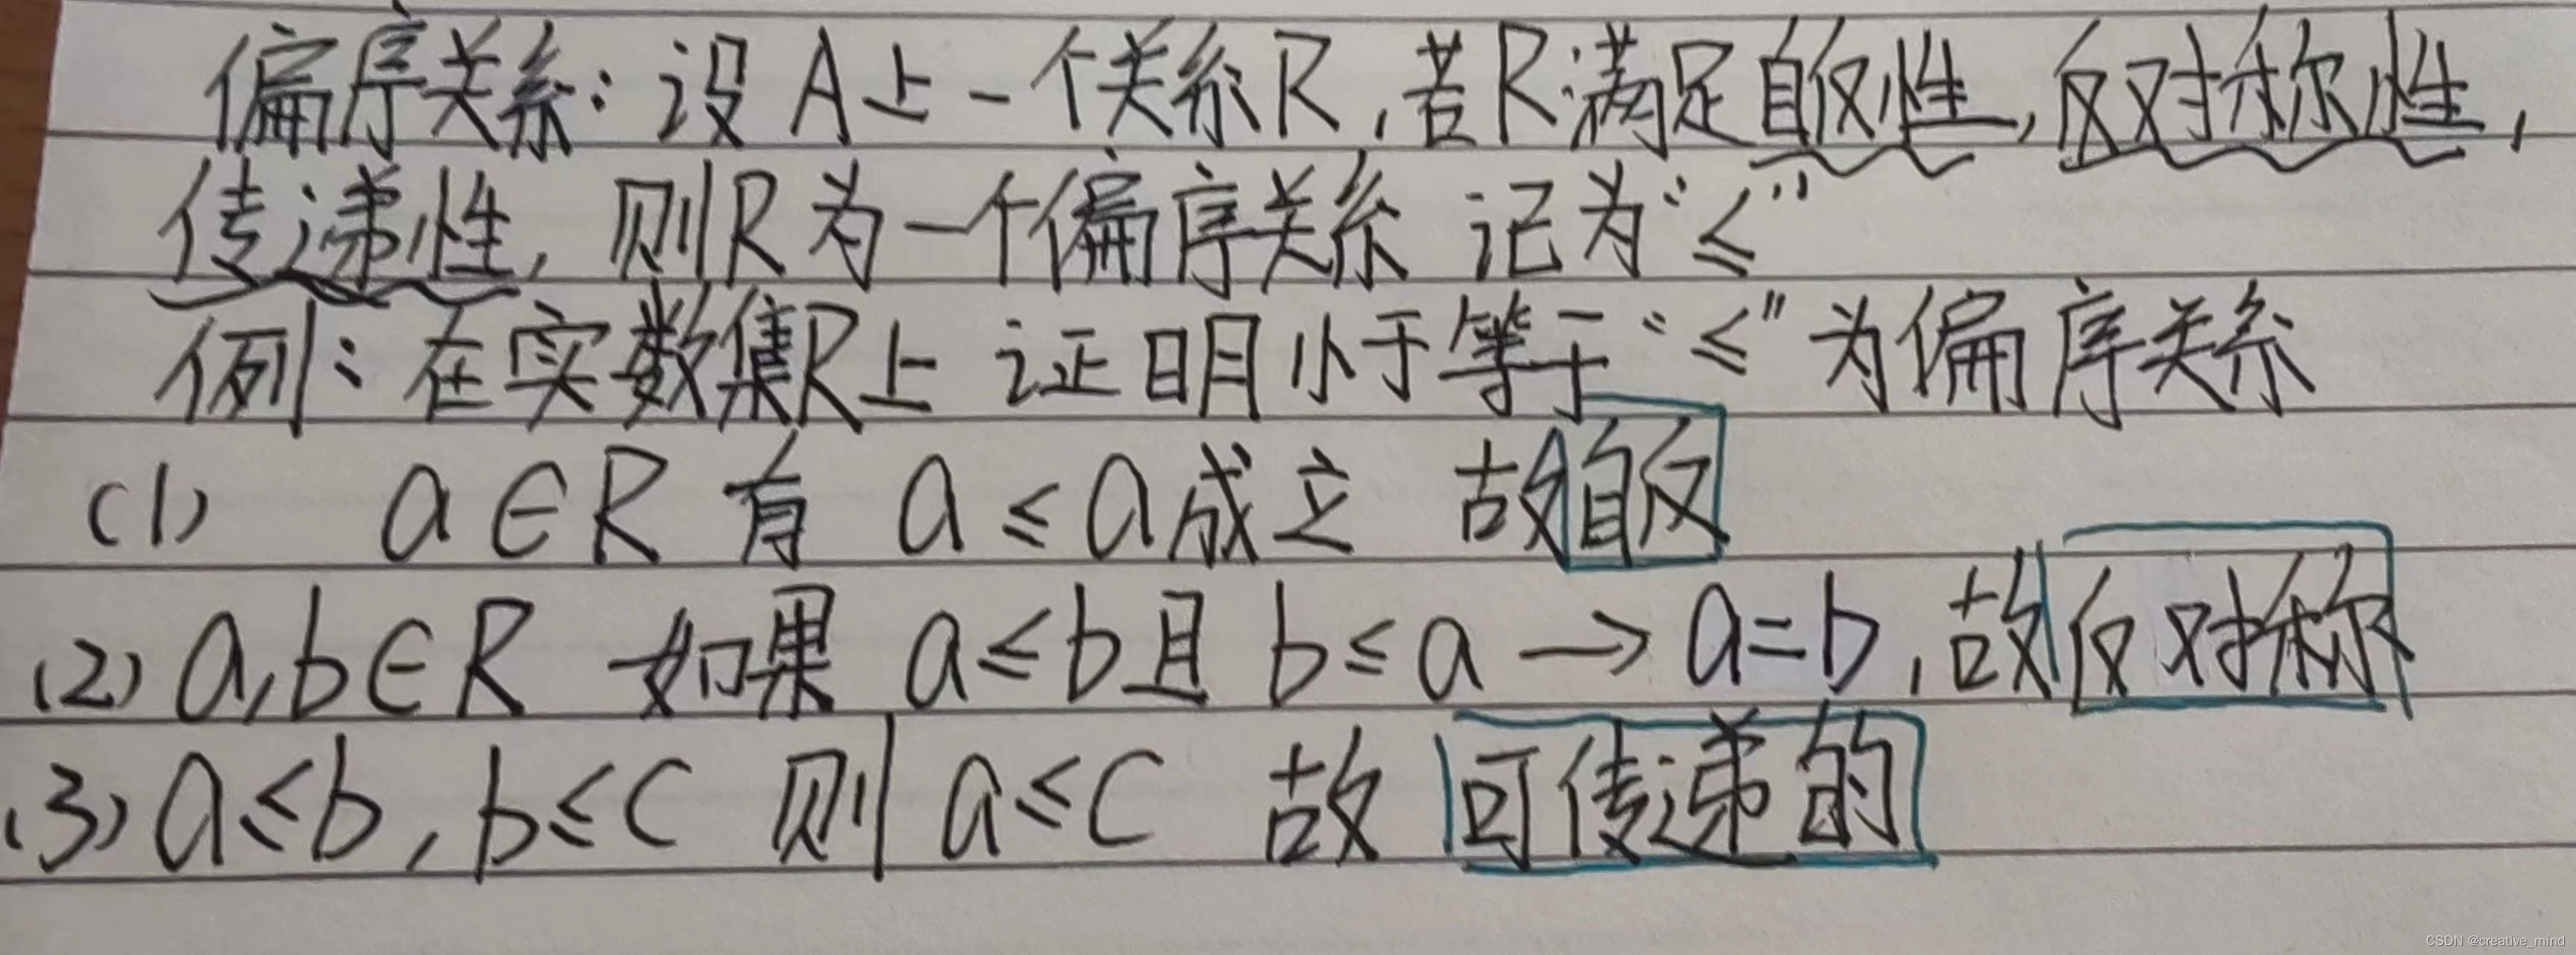 偏序关系：设A上一个关系R,若R满足自反性,反对称性,
传递性,则R为一个偏序关系 记为“≤”
例：在实数集R上 证明小于等于“≤”为偏序关系
(1) a∈R 有 a≤a成立 故自反
(2) a,b∈R 如果 a≤b且 b≤a → a=b,故反对称
(3) a≤b,b≤c 则 a≤c 故可传递的
CSDN @creative_mind